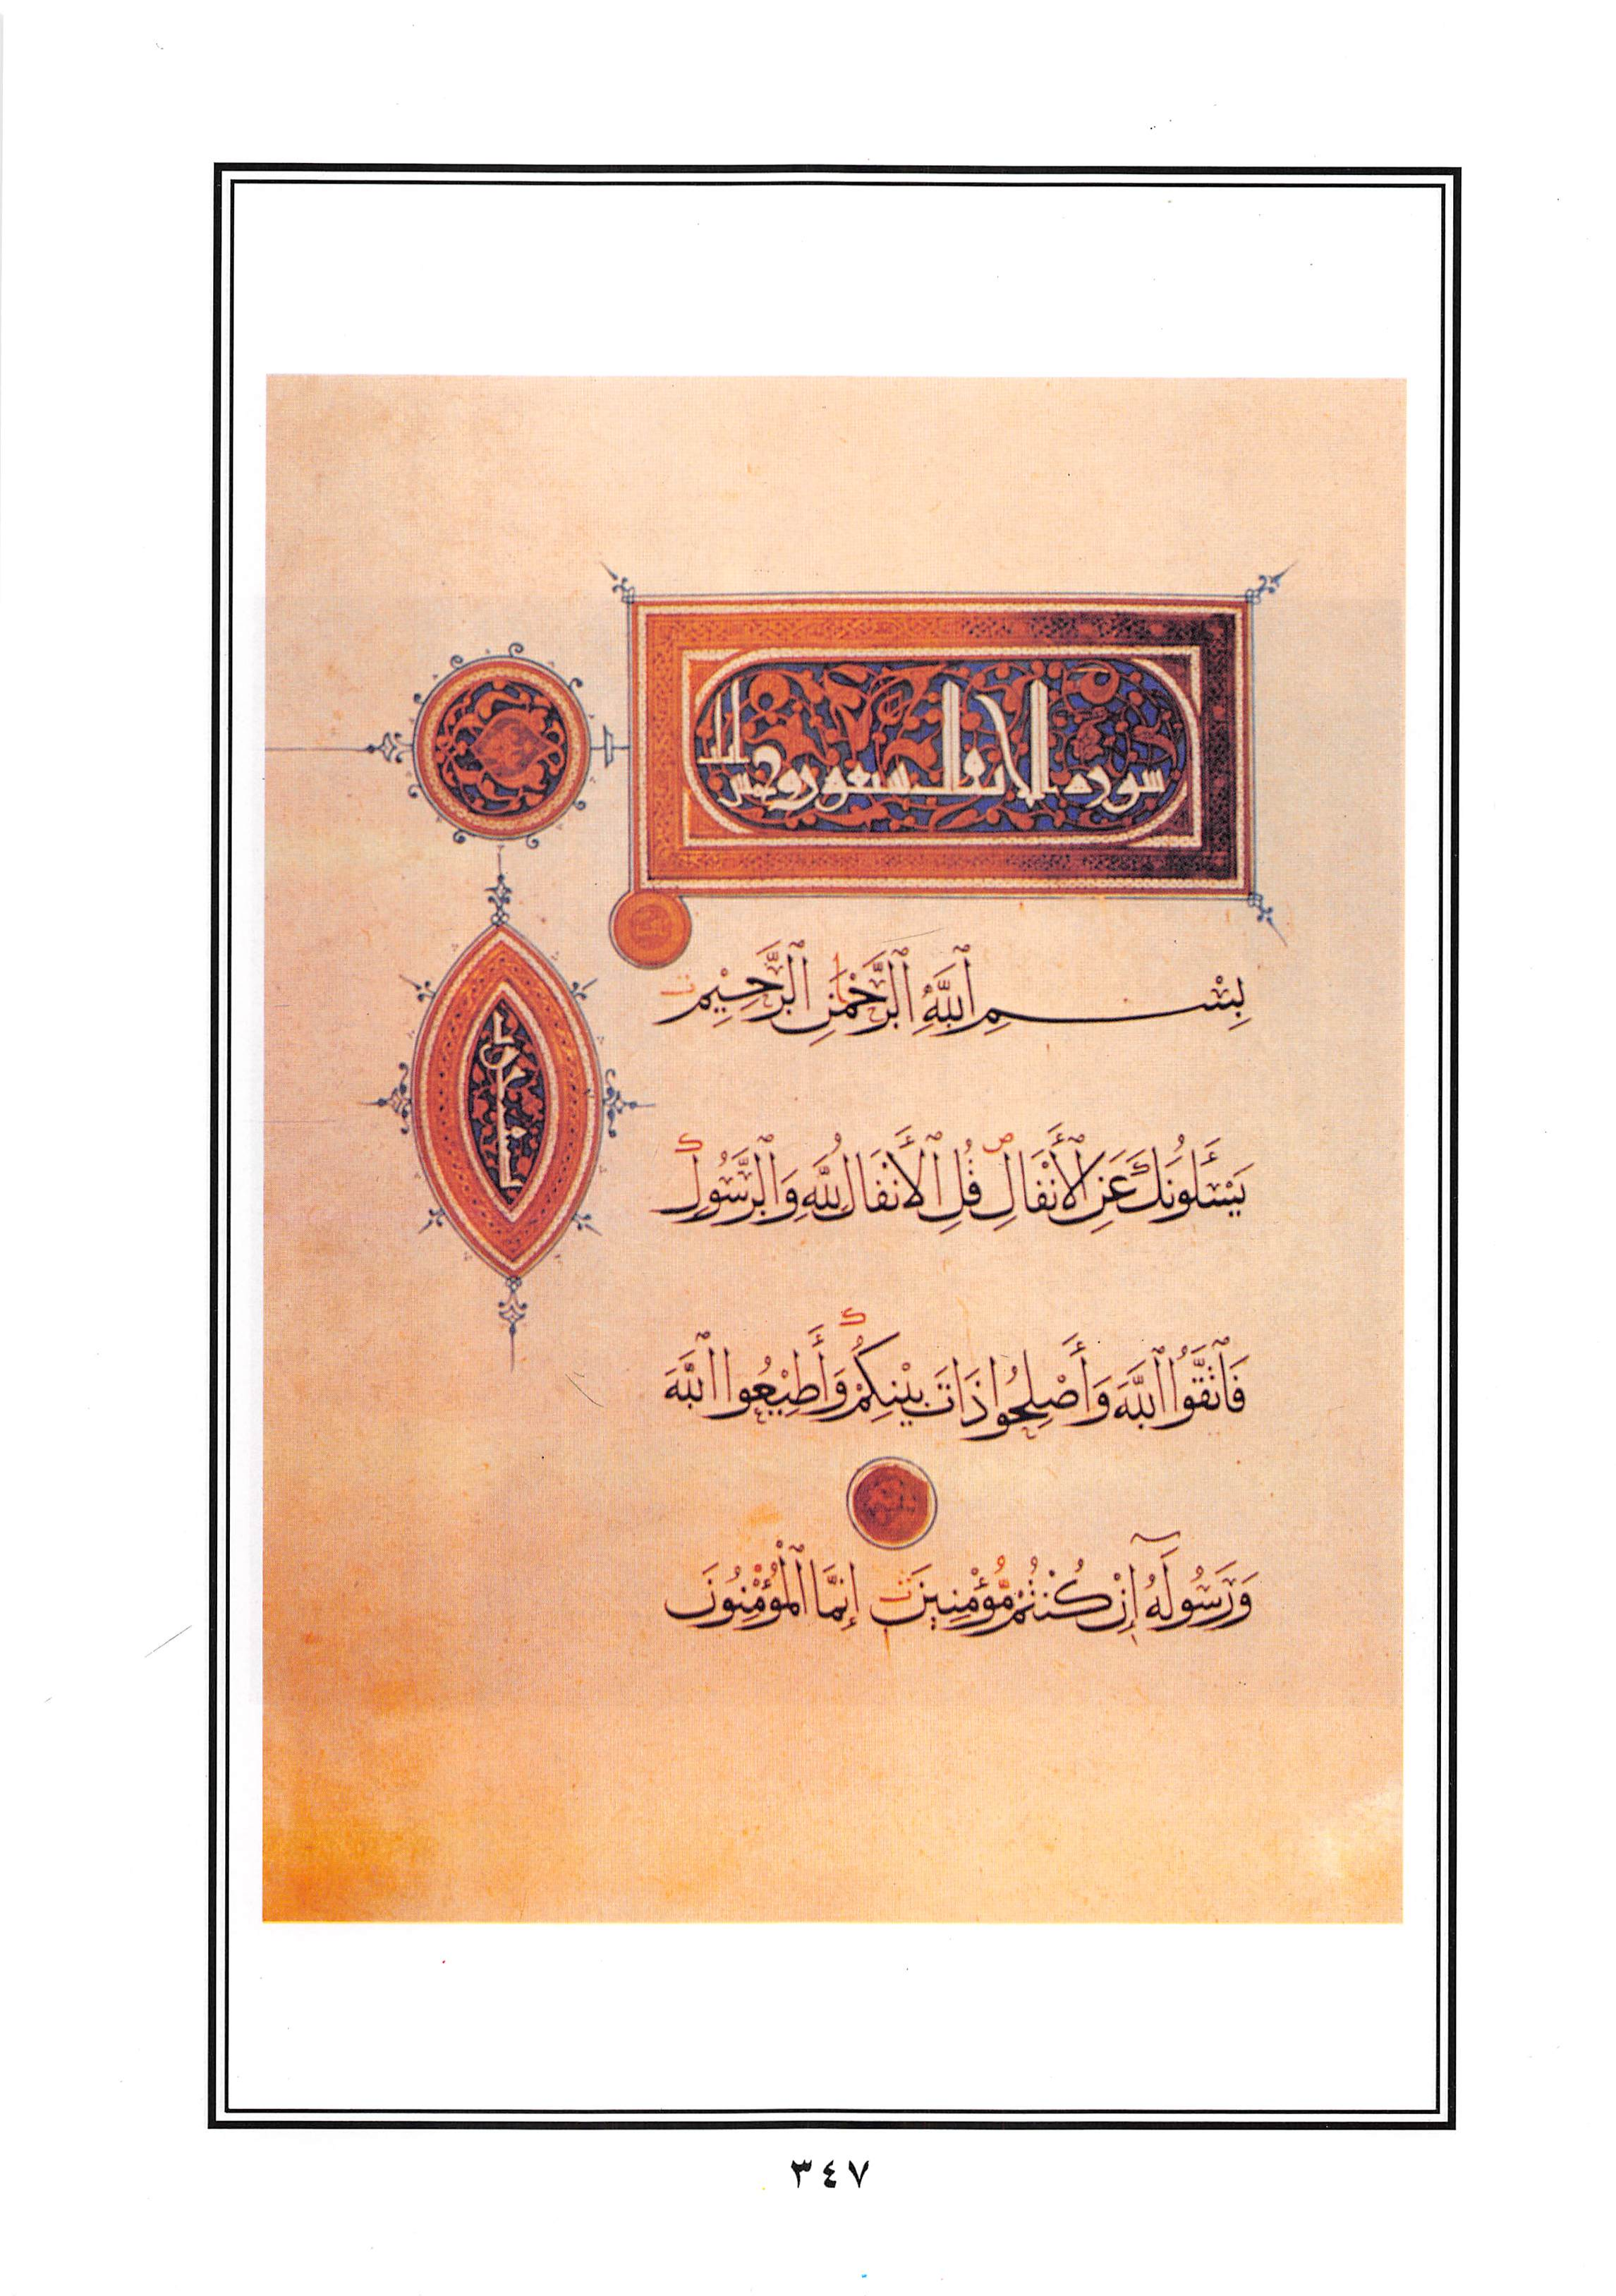 سورة الانفال سبعون وخمس
بِسْمِ ٱللَّهِ ٱلرَّحْمَٰنِ ٱلرَّحِيمِ
يَسْـَٔلُونَكَ عَنِ ٱلْأَنْفَالِ قُلِ ٱلْأَنْفَالُ لِلَّهِ وَٱلرَّسُولِ
فَٱتَّقُوا ٱللَّهَ وَأَصْلِحُوا ذَاتَ بَيْنِكُمْ وَأَطِيعُوا ٱللَّهَ
وَرَسُولَهُ إِنْ كُنْتُمْ مُؤْمِنِينَ إِنَّمَا ٱلْمُؤْمِنُونَ
٣٤٧